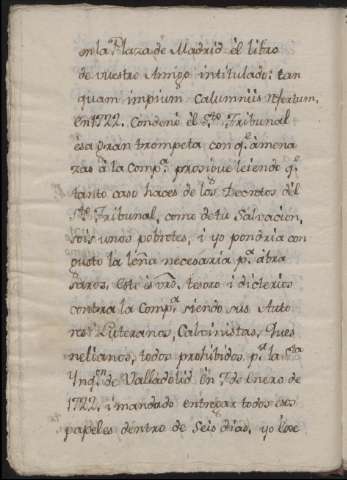 en la Plaza de Madrid el libro
de vuestro Amigo intitulado: tan
quam impium Calumniis refertum,
en 1722. Condenó el S.to Tribunal
esa gran trompeta con q.e amena
zas a la Comp.a prosigue leiendo q.e
tanto caso haces de los Decretos del
S.to Tribunal, como de tu Salvacion,
sois unos pobretes, i yo pondria con
gusto la leña necesaria p.a abra
saros. este es vro. tesoro i dicterios
contra la Comp.a siendo sus Auto
res Luteranos, Calvinistas, Ques
nelianos, todos prohibidos p.r la S.ta
Ynq.on de Valladolid en 7 de Enero de
1722. i mandado entregar todos esos
papeles dentro de Seis dias, yo